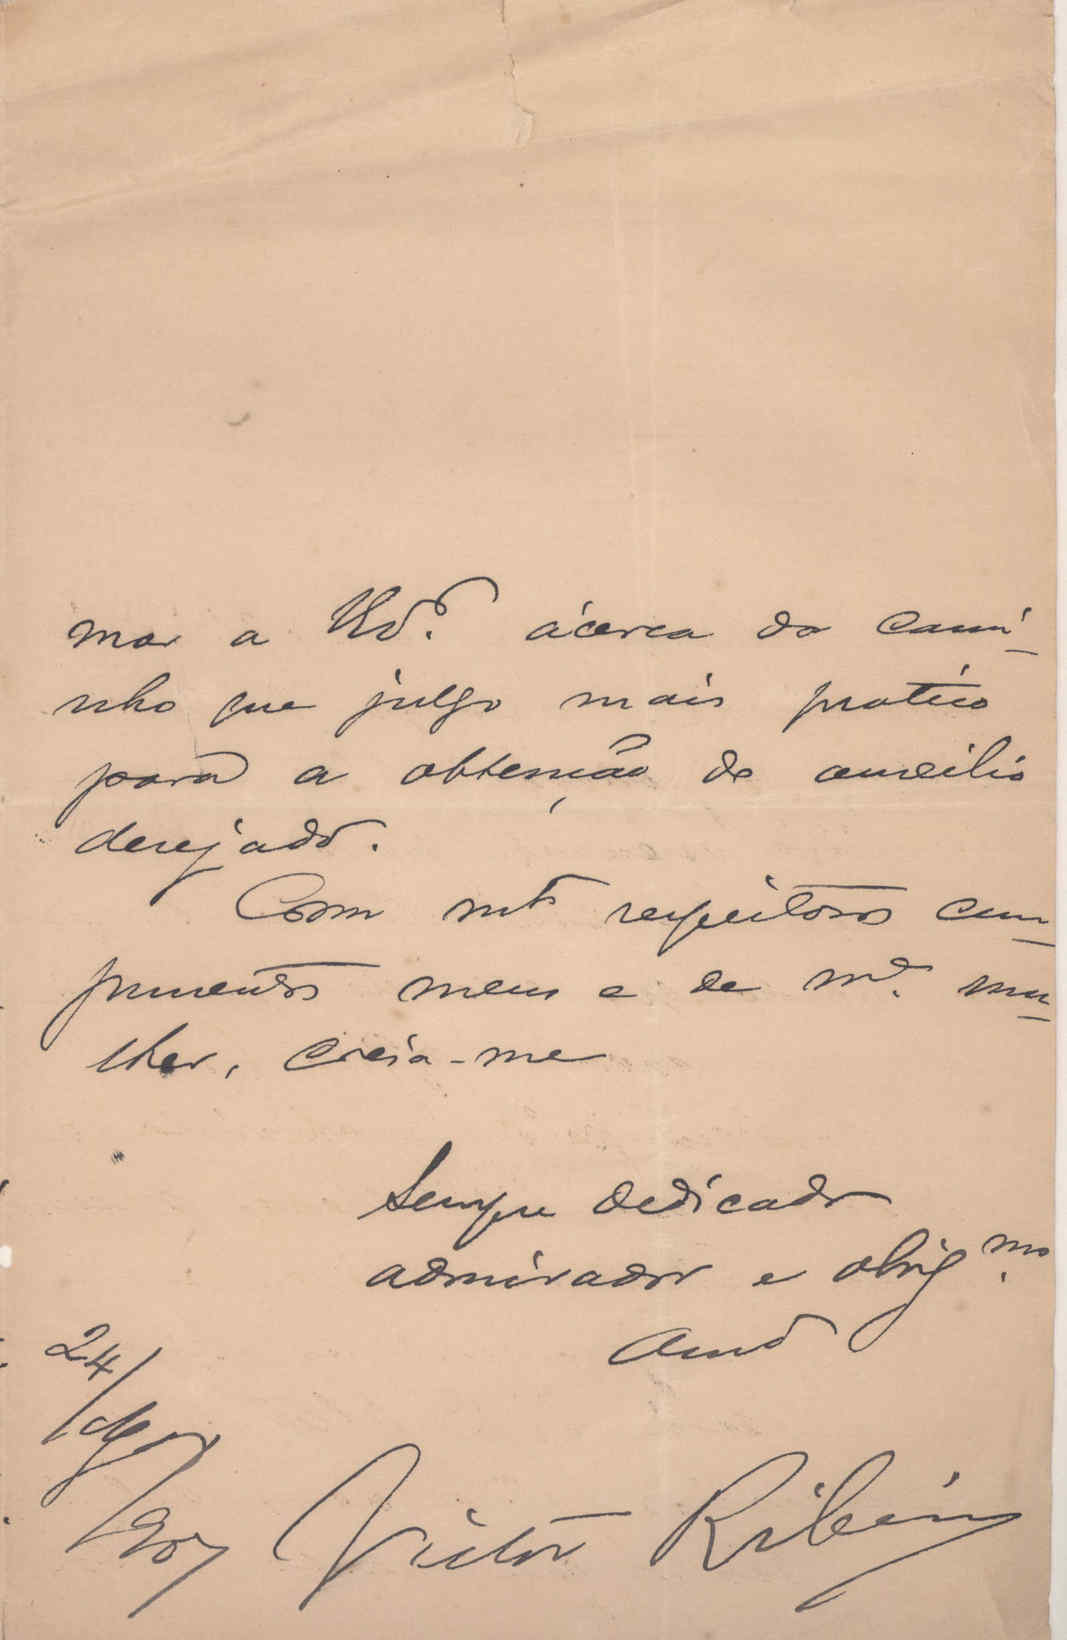 mar a V. Ex.ª ácerca do cami-
nho que julgo mais pratico
para a obtenção do auxilio
desejado.
Com mtos respeitosos cum-
primentos meus e de mª. mu-
lher, creia-me
Sempre dedicado
admirador e obrig.mo
amo
24/
/90
Victor Ribeiro